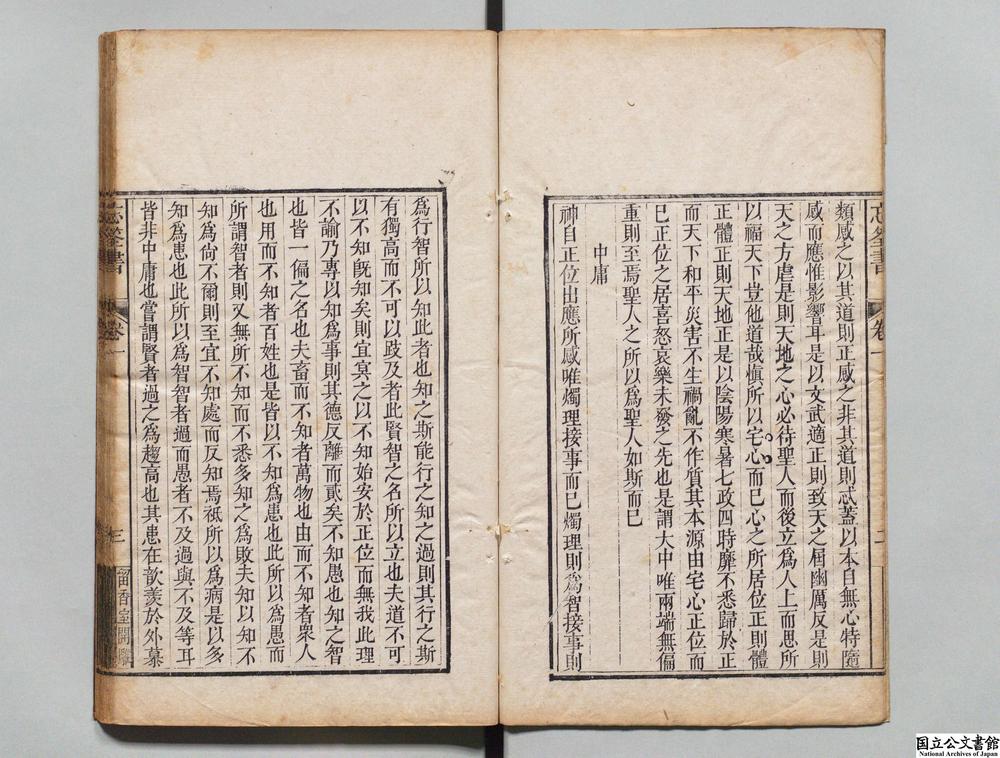 類感之以其道則正感之非其道則忒蓋以本自無心特隨
感而應惟影響耳是以文武適正則致天之屆幽厲反是則
天之方虐是則天地之心必待聖人而後立為人上而思所
以福天下豈他道哉愼所以宅心而已心之所居位正則體
正體正則天地正是以陰陽寒暑七政四時靡不悉歸於正
而天下和平災害不生禍亂不作質其本源由宅心正位而
已正位之居喜怒哀樂未發之先也是謂大中唯兩端無偏
重則至焉聖人之所以為聖人如斯而已
中庸
神自正位出應所感唯燭理接事而已燭理則為智接事則
忘筌書
卷一
二
為行智所以知此者也知之斯能行之知之過則其行之斯
有獨高而不可以跂及者此賢智之名所以立也夫道不可
以不知旣知矣則宜冥之以不知始安於正位而無我此理
不諭乃專以知為事則其德反離而貳矣不知愚也知之智
也皆一偏之名也夫畜而不知者萬物也由而不知者衆人
也用而不知者百姓也是皆以不知為患也此所以為愚而
所謂智者則又無所不知而不悉多知之為敗夫知以知不
知為尙不爾則至宜不知處而反知焉祗所以為病是以多
知為患也此所以為智智者過而愚者不及過與不及等耳
皆非中庸也嘗謂賢者過之為趨高也其患在歆羨於外慕
忘筌書
卷一
三
留香室開雕
国立公文書館
National Archives of Japan